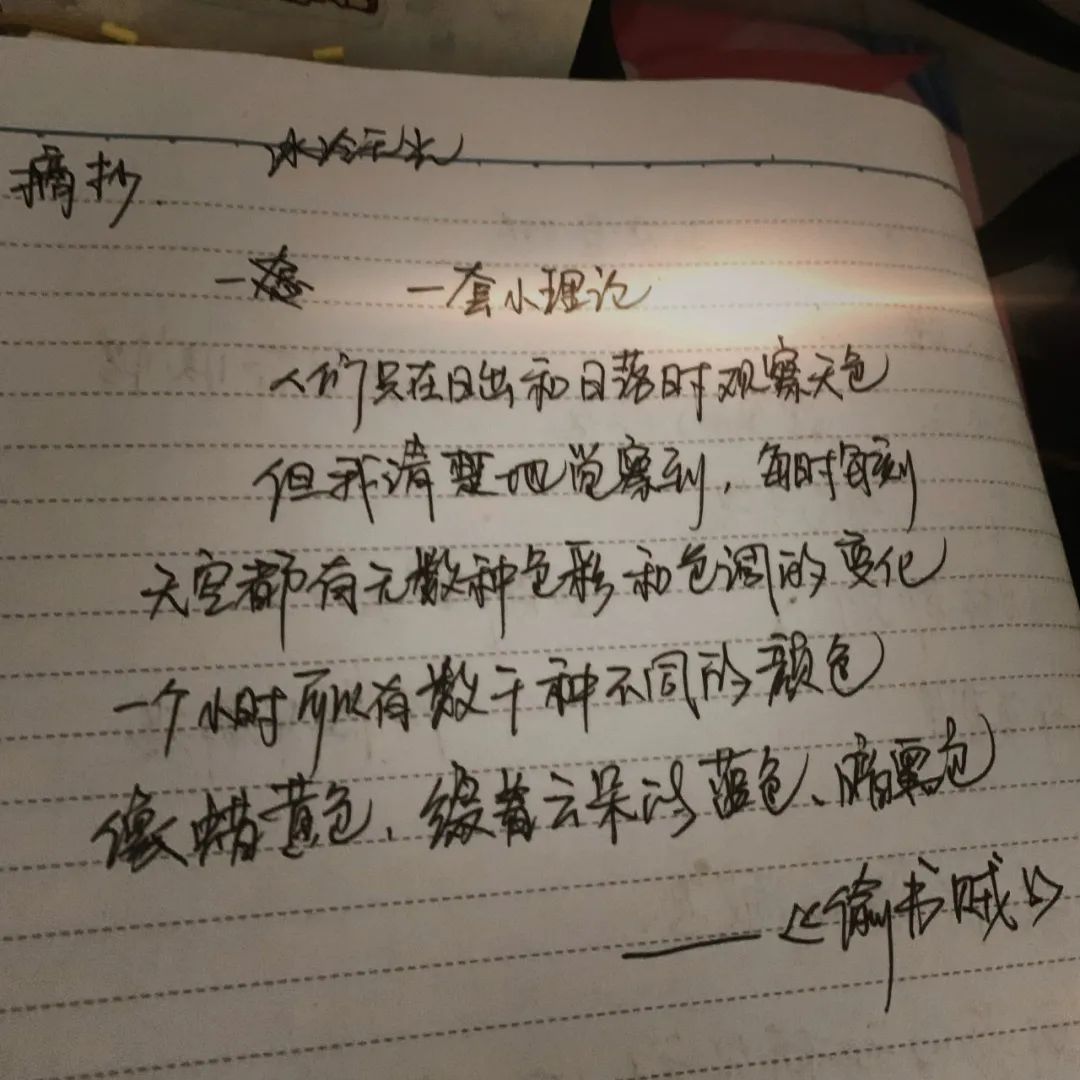 摘抄.
一 一套小理论
人们只在日出和日落时观察天色
但我清楚地觉察到，每时每刻
天空都有无数种色彩和色调的变化
一个小时可以有数千种不同的颜色
像蜡黄色、缀着云朵的蓝色、暗黑色
——《偷书贼》